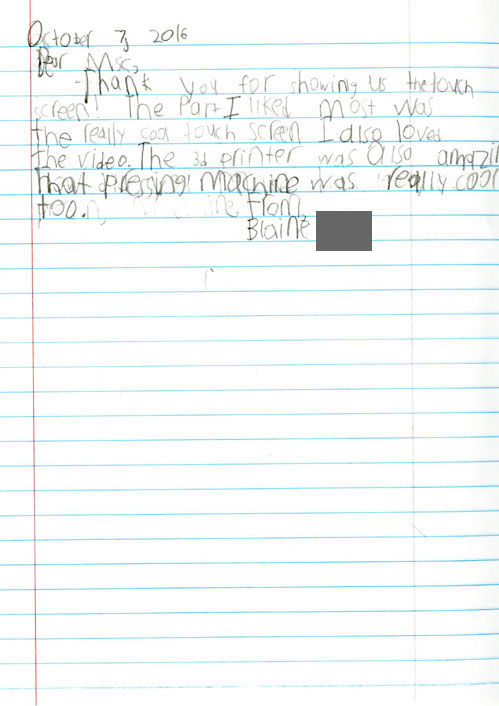 October 7, 2016
Dear Msc,
Thank you for showing us the touch
screen. The Part I liked Most was
the really cool touch screen I also loved
the video. The 3d printer was also amazi
that pressing Machine was really cool
too. From,
Blaine